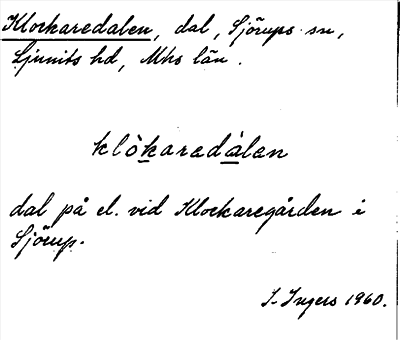 Klockaredalen, dal, Sjörups sn,
Ljunits hd, Mhs län.
klòkaredàlen
dal på el. vid Klockaregården i
Sjörup.
I. Ingers 1960.